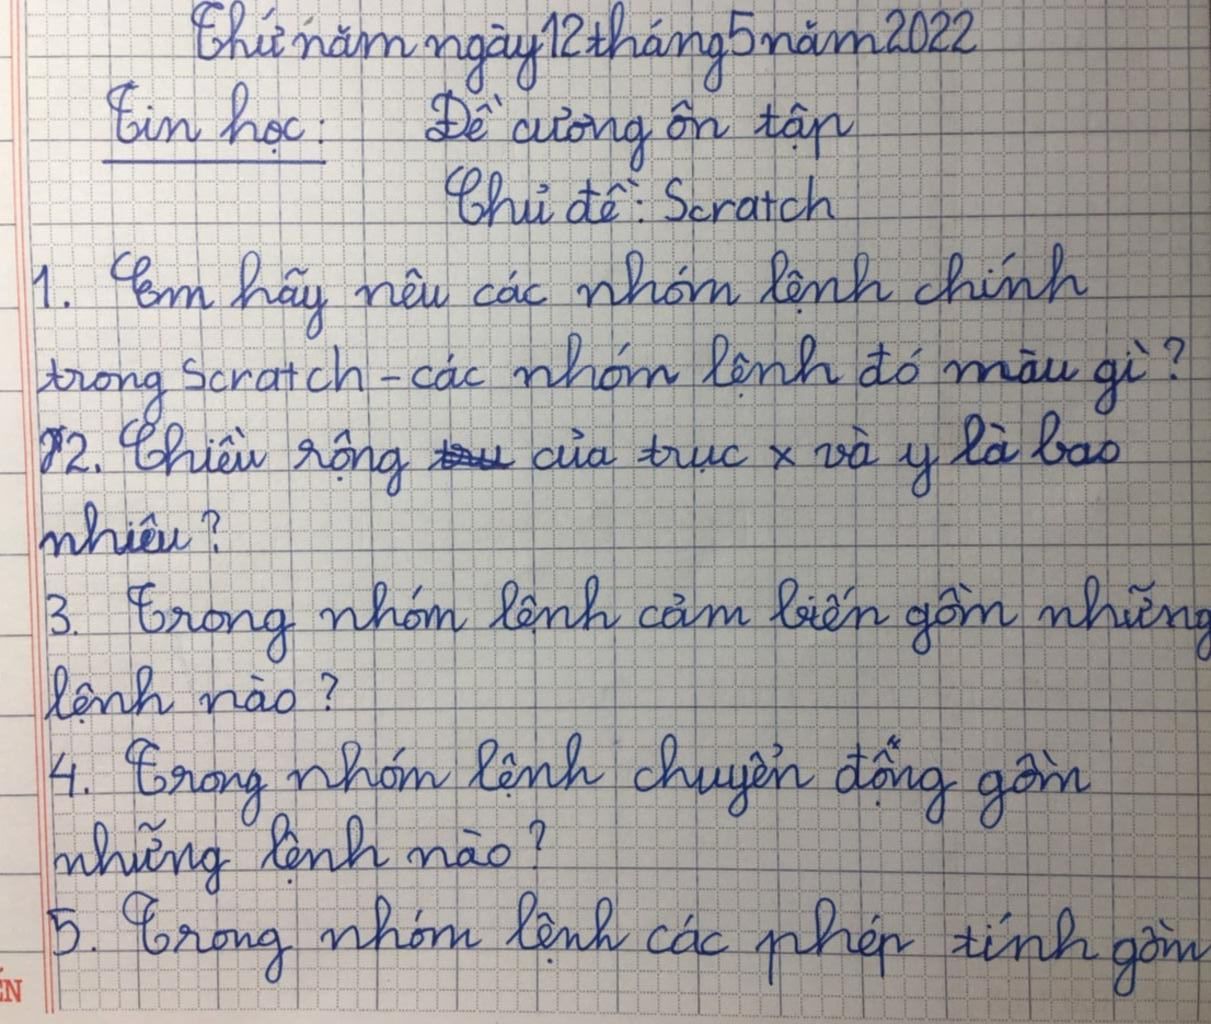 Thứ năm ngày 12 tháng 5 năm 2022
Tin học: Đề cương ôn tập
Chủ đề: Scratch
1. Em hãy nêu các nhóm lệnh chính
trong Scratch - các nhóm lệnh đó màu gì?
2. Chiều rộng của trục x và y là bao
nhiêu?
3. Trong nhóm lệnh cảm biến gồm những
lệnh nào?
4. Trong nhóm lệnh chuyển động gồm
những lệnh nào?
5. Trong nhóm lệnh các phép tính gồm
ẾN